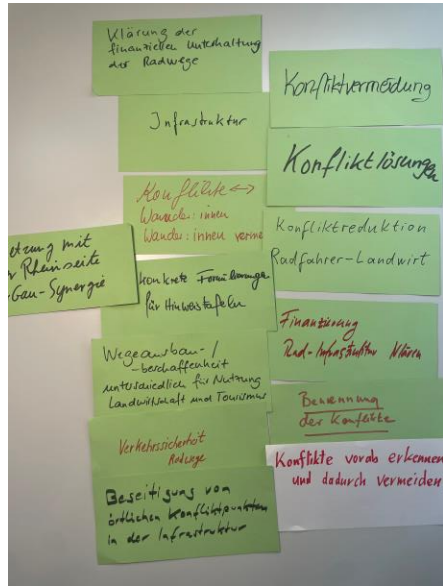 Klärung der
finanziellen Unterhaltung
der Radwege
Infrastruktur
Konflikte <->
Wander:innen
Wander:innen verme
etzung mit
Rheinseite
Gau-Synergie
konkrete Formulierungen
für Hinweistafeln
Wegeausbau-/
-beschaffenheit
unterschiedlich für Nutzung
Landwirtschaft und Tourismus
Verkehrssicherheit
Radwege
Beseitigung von
örtlichen Konfliktpunkten
in der Infrastruktur
Konfliktvermeidung
Konfliktlösungen
Konfliktreduktion
Radfahrer-Landwirt
Finanzierung
Rad-Infrastruktur klären
Benennung
der Konflikte
Konflikte vorab erkennen
und dadurch vermeiden